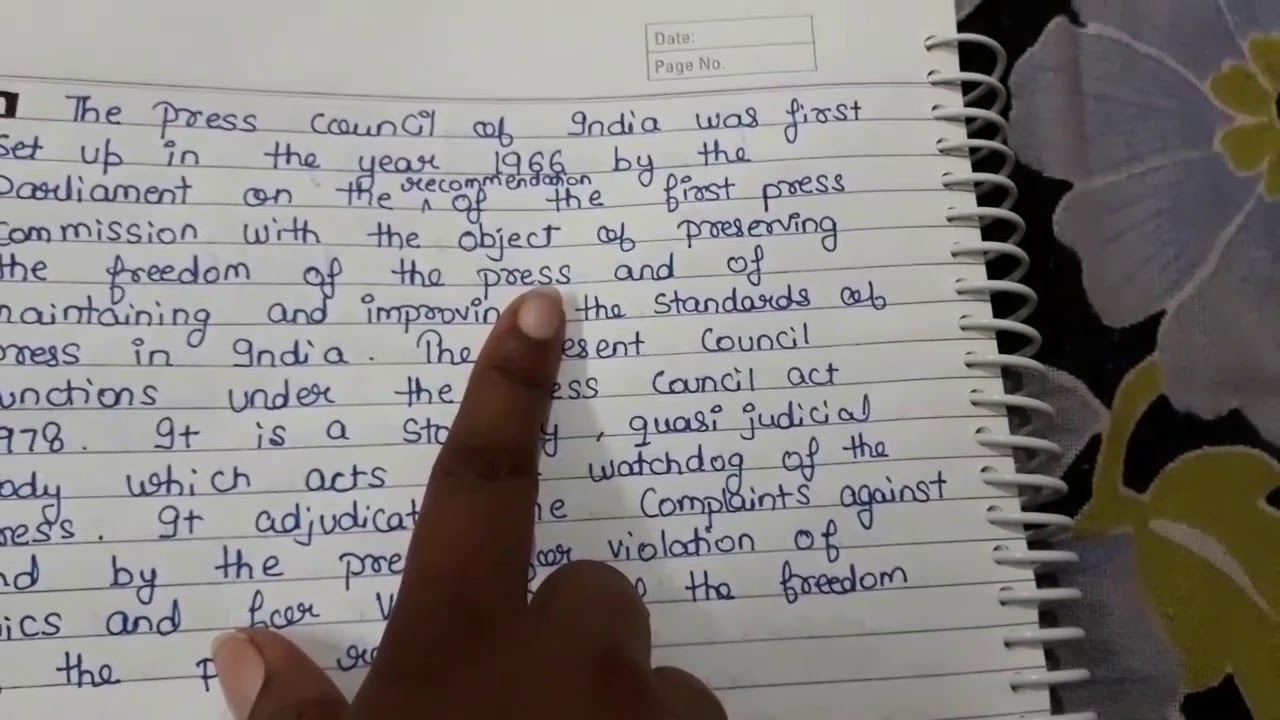 Date:
Page No.
The press council of India was first
set up in the year 1966 by the
Parliament on the recommendation of the first press
commission with the object of preserving
the freedom of the press and of
maintaining and improving the standards of
press in India. The esent council
unctions under the ess council act
978. It is a quasi judicial
ody which acts watchdog of the
ress. It adjudicat complaints against
nd by the pre for violation of
ics and for the freedom
the